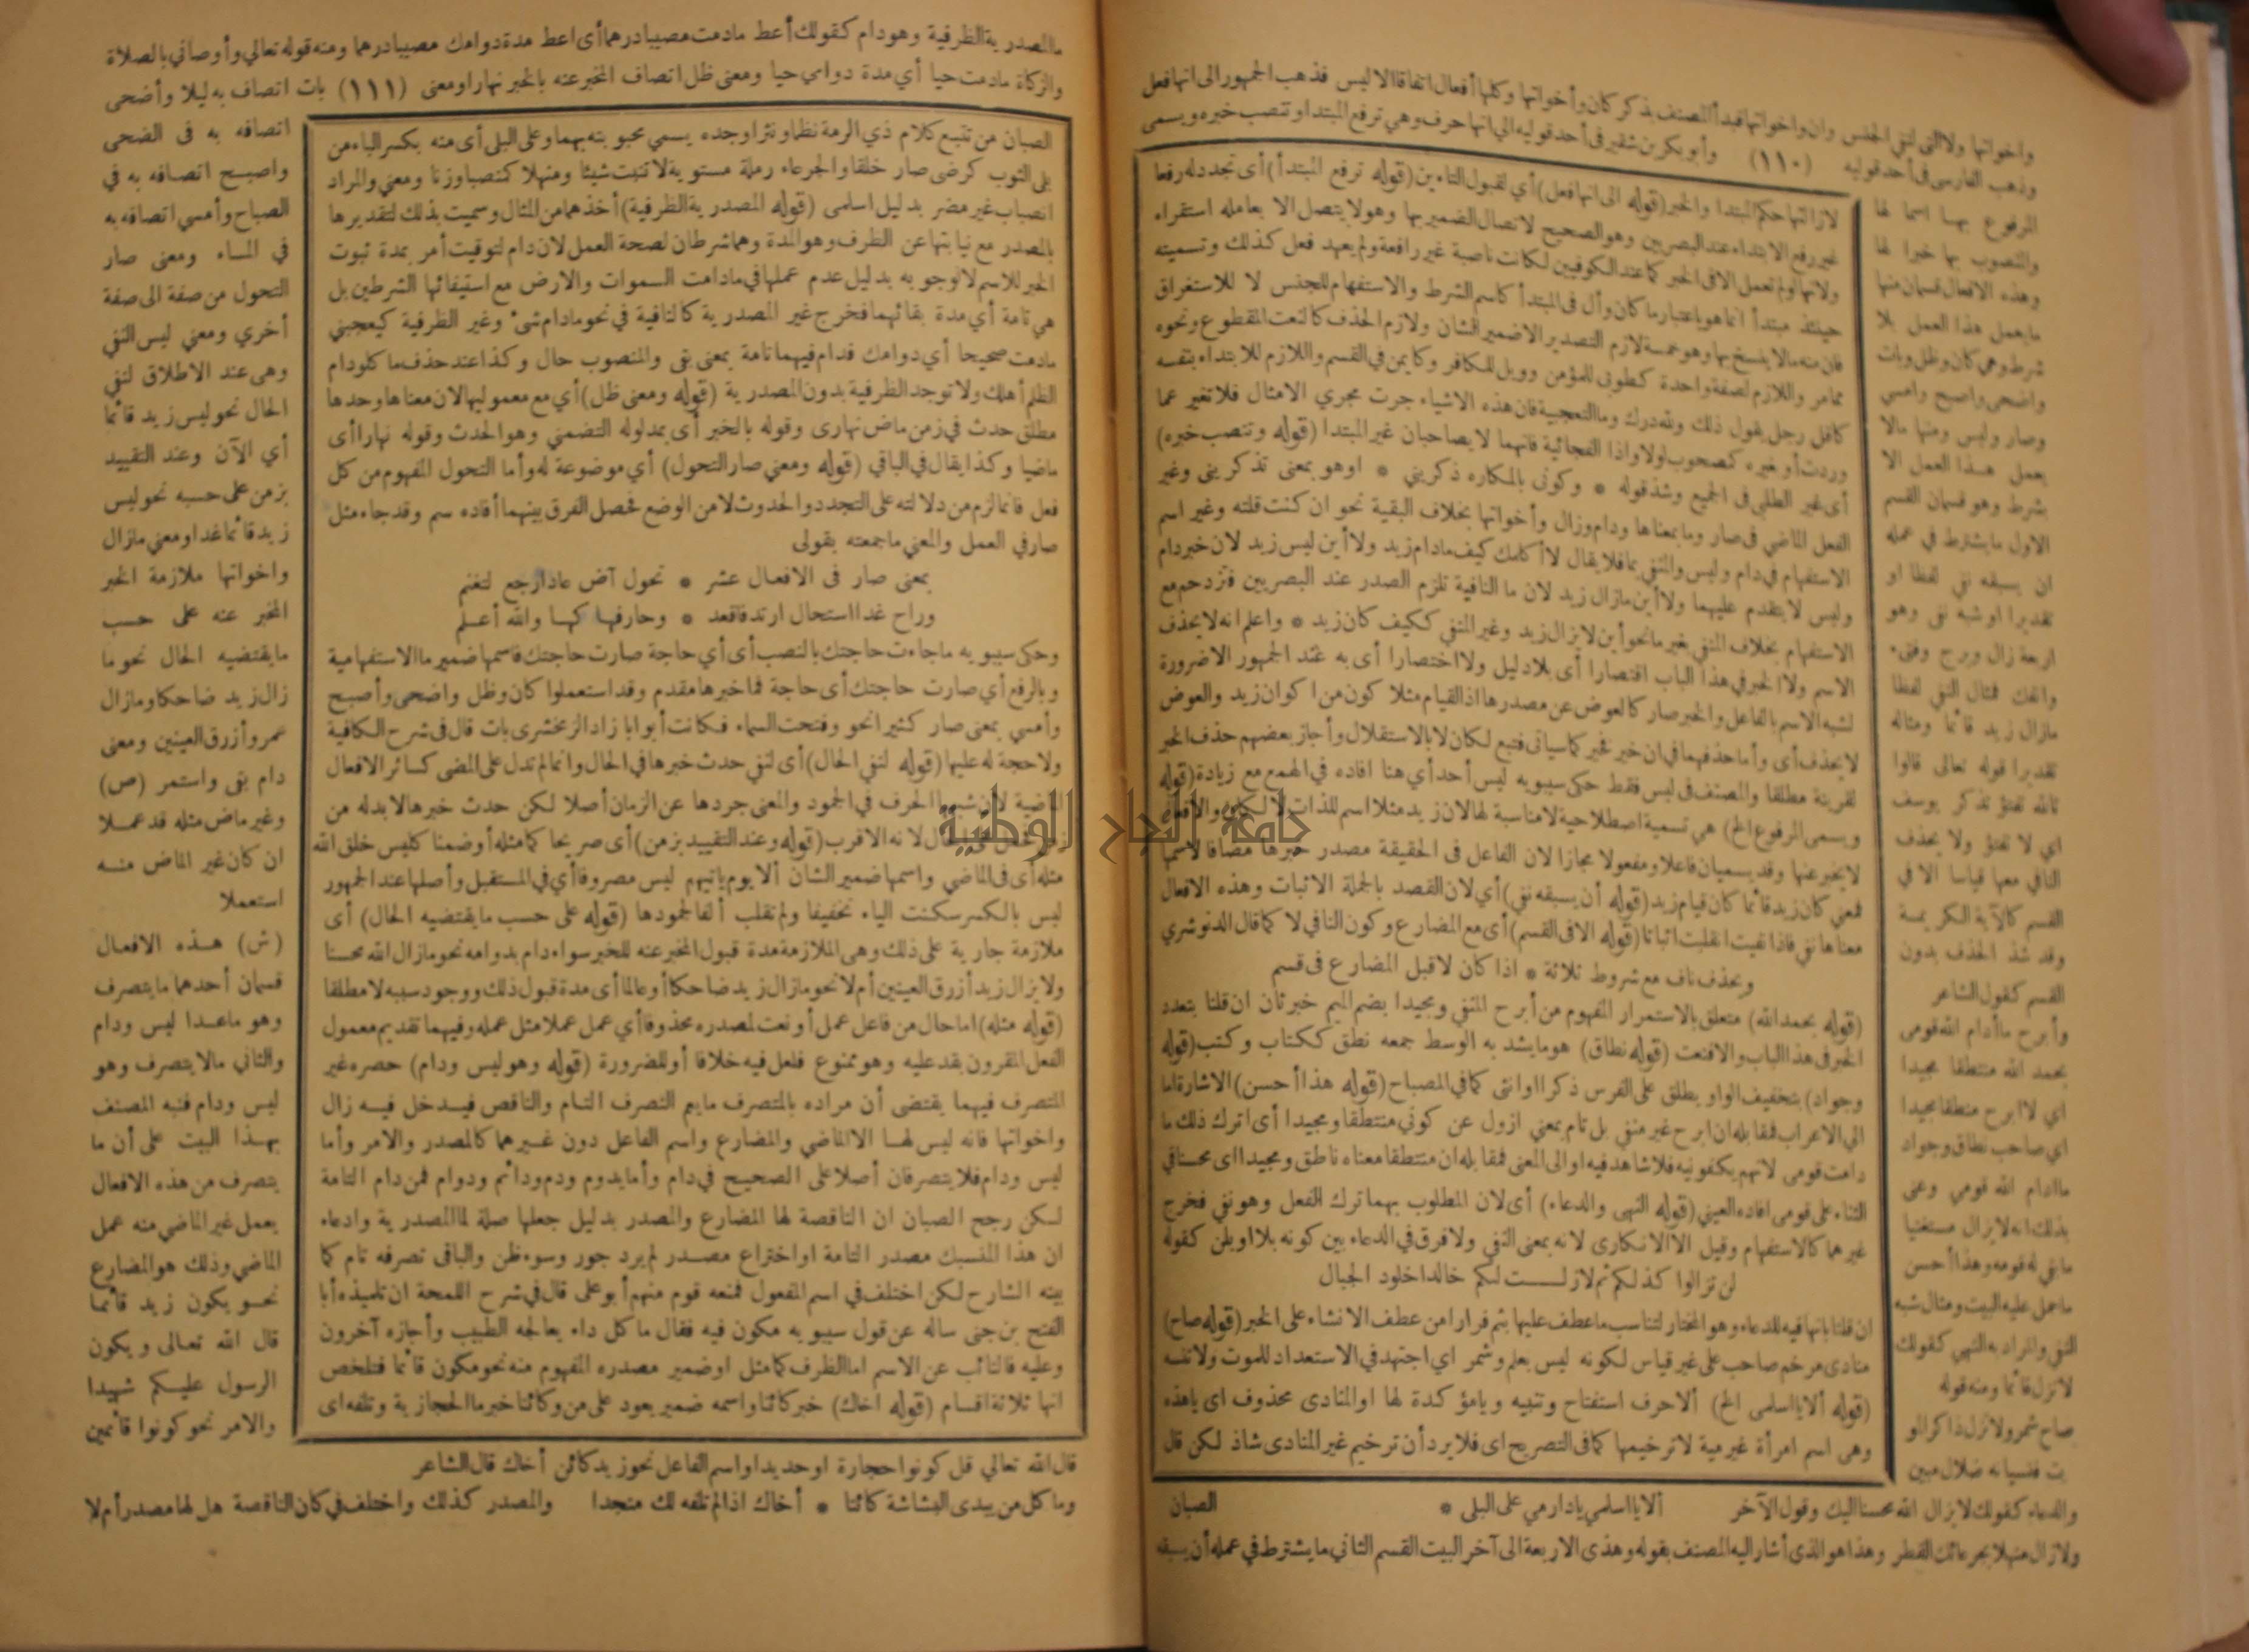 واخواتها ولا التي لنفي الجنس وان واخواتها فبدأ المصنف بذكر كان وأخواتها وكلها أفعال اتفاقا الا ليس فذهب الجمهور الى انها فعل
وذهب الفارسى فى أحد قوليه (١١٠) وأبو بكر بن شقير فى أحد قوليه الي انها حرف وهي ترفع المبتدا وتنصب خبره ويسمى
المرفوع بها اسما لها
والمنصوب بها خبرا لها
وهذه الافعال قسمان منها
ما يعمل هذا العمل بلا
شرط وهي كان وظل وبات
واضحى واصبح وامسي
وصار وليس ومنها مالا
يعمل هذا العمل الا
بشرط وهو قسمان القسم
الاول ما يشترط في عمله
ان يسبقه نفي لفظا او
تقديرا او شبه نفى وهو
اربعة زال وبرح وفتىء
وانفك فمثال النفي لفظا
مازال زيد قائما ومثاله
تقديرا قوله تعالى قالوا
تالله تفتؤ تذكر يوسف
اي لا تفتؤ ولا يحذف
النافي معها قياسا الا في
القسم كالآية الكريمة
وقد شذ الحذف بدون
القسم كقول الشاعر
وأبرح ما أدام الله قومى
بحمد الله منتطقا مجيدا
اي لا ابرح منتطقا مجيدا
اي صاحب نطاق وجواد
ما ادام الله قومي وعنى
بذلك انه لا يزال مستغنيا
ما بقي له قومه وهذا أحسن
ما حمل عليه البيت ومثال شبه
النفي والمراد به النهي كقولك
لا تزل قائما ومنه قوله
صاح شمر ولا تزل ذاكر المو
ت فنسيانه ضلال مبين
لازالتها حكم المبتدا والخبر (قوله الى انها فعل) أي لقبول التاءين (قوله ترفع المبتدأ) أى تجدد له رفعا
غير رفع الابتداء عند البصريين وهو الصحيح لاتصال الضمير بها وهو لا يتصل الا بعامله استقراء
ولانها لو لم تعمل الا فى الخبر كما عند الكوفيين لكانت ناصبة غير رافعة ولم يعهد فعل كذلك وتسميته
حينئذ مبتدأ انما هو باعتبار ما كان وأل فى المبتدأ كاسم الشرط والاستفهام للجنس لا للاستغراق
فان منه مالا ينسخ بها وهو خمسة لازم التصدير الا ضمير الشان ولازم الحذف كالنعت المقطوع ونحوه
مما مر واللازم لصفة واحدة كطوبى للمؤمن وويل للكافر وكايمن في القسم واللازم للابتداء بنفسه
كاقل رجل يقول ذلك ولله درك وما التعجبية فان هذه الاشياء جرت مجري الامثال فلا تغير عما
وردت أو غيره كمصحوب لولا واذا الفجائية فانهما لا يصاحبان غير المبتدا (قوله وتنصب خبره)
أى غير الطلبي فى الجميع وشذ قوله * وكونى بالمكاره ذكريني * او هو بمعنى تذكرينى وغير
الفعل الماضي فى صار وما بمعناها ودام وزال وأخواتها بخلاف البقية نحو ان كنت قلته وغير اسم
الاستفهام في دام وليس والمنفي بما فلا يقال لا أكلمك كيف مادام زيد ولا أين ليس زيد لان خبر دام
وليس لا يتقدم عليهما ولا أين مازال زيد لان ما النافية تلزم الصدر عند البصريين فتزدحم مع
الاستفهام بخلاف المنفي بغير ما نحو أين لا يزال زيد وغير المنفي ككيف كان زيد * واعلم انه لا يحذف
الاسم ولا الخبر في هذا الباب اقتصارا أى بلا دليل ولا اختصارا أى به عند الجمهور الا ضرورة
لشبه الاسم بالفاعل والخبر صار كالعوض عن مصدرها اذ القيام مثلا كون من اكوان زيد والعوض
لا يحذف أى وأما حذفهما في ان خير فخير كما سيأتى فتبع لكان لا بالاستقلال وأجاز بعضهم حذف الخبر
لقرينة مطلقا والمصنف فى ليس فقط حكى سيبويه ليس أحد أي هنا افاده في الهمع مع زيادة (قوله
ويسمى المرفوع الخ) هي تسمية اصطلاحية لا مناسبة لها لان زيد مثلا اسم للذات لا لكان والافعال
لا يخبر عنها وقد يسميان فاعلا ومفعولا مجازا لان الفاعل فى الحقيقة مصدر خبرها مضافا لاسمها
فمعني كان زيد قائما كان قيام زيد (قوله أن يسبقه نفي) أي لان القصد بالجملة الاثبات وهذه الافعال
معناها نفي فاذا نفيت انقلبت اثباتا (قوله الا فى القسم) أى مع المضارع وكون النافي لا كما قال الدنوشري
ويحذف ناف مع شروط ثلاثة * اذا كان لا قبل المضارع فى قسم
(قوله بحمد الله) متعلق بالاستمرار المفهوم من أبرح المنفي ومجيدا بضم الميم خبر ثان ان قلنا بتعدد
الخبر فى هذا الباب والا فنعت (قوله نطاق) هو ما يشد به الوسط جمعه نطق ككتاب وكتب (قوله
وجواد) بتخفيف الواو يطلق على الفرس ذكرا او انثى كما في المصباح (قوله هذا أحسن) الاشارة اما
الي الاعراب فمقابله ان ابرح غير منفي بل تام بمعني ازول عن كوني منتطقا ومجيدا أى اترك ذلك ما
دامت قومى لانهم يكفونيه فلا شاهد فيه او الى المعنى فمقابله ان منتطقا معناه ناطق ومجيدا اى محسنا في
الثناء على قومى افاده العيني (قوله النهى والدعاء) أى لان المطلوب بهما ترك الفعل وهو نفي فخرج
غيرهما كالاستفهام وقيل الا الانكارى لانه بمعنى النفي ولا فرق في الدعاء بين كونه بلا او بلن كقوله
لن تزالوا كذلكم ثم لازلــــت لكم خالدا خلود الجبال
ان قلنا بانها فيه للدعاء وهو المختار لتناسب ما عطف عليها بثم فرارا من عطف الانشاء على الخبر (قوله صاح)
منادى مرخم صاحب على غير قياس لكونه ليس بعلم وشمر اي اجتهد في الاستعداد للموت ولا تنسه
(قوله ألا يا اسلمى الخ) ألا حرف استفتاح وتنبيه ويا مؤكدة لها او المنادى محذوف اى ياهذه
وهى اسم امرأة غير مية لا ترخيمها كما في التصريح اى فلا يرد أن ترخيم غير المنادى شاذ لكن قال
والدعاء كقولك لا يزال الله محسنا اليك وقول الآخر ألا يا اسلمي يا دار مي على البلى * الصبان
ولا زال منهلا بجرعائك القطر وهذا هو الذى أشار اليه المصنف بقوله وهذى الاربعة الى آخر البيت القسم الثاني ما يشترط في عمله أن يسبقه
ما المصدرية الظرفية وهو دام كقولك أعط مادمت مصيبا درهما أى اعط مدة دوامك مصيبا درهما ومنه قوله تعالي وأوصاني بالصلاة
والزكاة مادمت حيا أي مدة دوامي حيا ومعنى ظل اتصاف المخبر عنه بالخبر نهارا ومعنى (١١١) بات اتصاف به ليلا وأضحى
الصبان من تتبع كلام ذي الرمة نظما ونثرا وجده يسمي محبوبته بهما وعلى البلى أى منه بكسر الباء من
بلى الثوب كرضى صار خلقا والجرعاء رملة مستوية لا تنبت شيئا ومنهلا كمنصبا وزنا ومعني والمراد
انصباب غير مضر بدليل اسلمى (قوله المصدرية الظرفية) أخذهما من المثال وسميت بذلك لتقديرها
بالمصدر مع نيابتها عن الظرف وهو المدة وهما شرطان لصحة العمل لان دام لتوقيت أمر بمدة ثبوت
الخبر للاسم لا لوجوبه بدليل عدم عملها في مادامت السموات والارض مع استيفائها الشرطين بل
هي تامة أي مدة بقائهما فخرج غير المصدرية كالنافية في نحو مادام شىء وغير الظرفية كيعجبني
مادمت صحيحا أي دوامك فدام فيهما تامة بمعنى بقى والمنصوب حال وكذا عند حذف ما كلو دام
الظلم أهلك ولا توجد الظرفية بدون المصدرية (قوله ومعنى ظل) أي مع معموليها لان معناها وحدها
مطلق حدث في زمن ماض نهارى وقوله بالخبر أى بمدلوله التضمني وهو الحدث وقوله نهارا أى
ماضيا وكذا يقال في الباقي (قوله ومعني صار التحول) أي موضوعة له وأما التحول المفهوم من كل
فعل فانما لزم من دلالته على التجدد والحدوث لا من الوضع فحصل الفرق بينهما أفاده سم وقد جاء مثل
صار في العمل والمعني ما جمعته بقولى
بمعنى صار فى الافعال عشر * تحول آض عاد ارجع لتغنم
وراح غدا استحال ارتد فاقعد * وحار فها كها والله أعلم
وحكى سيبويه ما جاءت حاجتك بالنصب أى أي حاجة صارت حاجتك فاسمها ضمير ما الاستفهامية
وبالرفع أي صارت حاجتك أى حاجة فما خبرها مقدم وقد استعملوا كان وظل واضحى وأصبح
وأمسي بمعنى صار كثيرا نحو وفتحت السماء فكانت أبوابا زاد الزمخشرى بات قال فى شرح الكافية
ولا حجة له عليها (قوله لنفي الحال) أى لنفي حدث خبرها في الحال وانما لم تدل على المضى كسائر الافعال
الماضية لان شبهها الحرف في الجمود والمعنى جردها عن الزمان أصلا لكن حدث خبرها لا بد له من
زمن فحمل على الحال لانه الاقرب (قوله وعند التقييد بزمن) أى صريحا كما مثله أو ضمنا كليس خلق الله
مثله أى فى الماضي واسمها ضمير الشان ألا يوم يأتيهم ليس مصروفا أي في المستقبل وأصلها عند الجمهور
ليس بالكسر سكنت الياء تخفيفا ولم تقلب ألفا لجمودها (قوله على حسب ما يقتضيه الحال) أى
ملازمة جارية على ذلك وهى الملازمة مدة قبول المخبر عنه للخبر سواء دام بدوامه نحو مازال الله محسنا
ولا يزال زيد أزرق العينين أم لا نحو مازال زيد ضاحكا أو عالما أى مدة قبول ذلك ووجود سببه لا مطلقا
(قوله مثله) اما حال من فاعل عمل أو نعت لمصدره محذوفا أي عمل عملا مثل عمله وفيهما تقديم معمول
الفعل المقرون بقد عليه وهو ممنوع فلعل فيه خلافا أو للضرورة (قوله وهو ليس ودام) حصره غير
المتصرف فيهما يقتضى أن مراده بالمتصرف ما يعم التصرف التام والناقص فيدخل فيه زال
واخواتها فانه ليس لها الا الماضي والمضارع واسم الفاعل دون غيرهما كالمصدر والامر وأما
ليس ودام فلا يتصرفان أصلا على الصحيح في دام وأما يدوم ودم ودائم ودوام فمن دام التامة
لكن رجح الصبان ان الناقصة لها المضارع والمصدر بدليل جعلها صلة لما المصدرية وادعاء
ان هذا المنسبك مصدر التامة او اختراع مصدر لم يرد جور وسوء ظن والباقى تصرفه تام كما
بينه الشارح لكن اختلف في اسم المفعول فمنعه قوم منهم أبو على قال في شرح اللمحة ان تلميذه أبا
الفتح بن جنى ساله عن قول سيبويه مكون فيه فقال ما كل داء يعالجه الطبيب وأجازه آخرون
وعليه فالنائب عن الاسم اما الظرف كما مثل او ضمير مصدره المفهوم منه نحو مكون قائما فتلخص
انها ثلاثة اقسام (قوله اخاك) خبر كائنا واسمه ضمير يعود على من وكائنا خبر ما الحجازية وتلفه اى
اتصافه به فى الضحى
واصبح اتصافه به في
الصباح وأمسي اتصافه به
في المساء ومعنى صار
التحول من صفة الى صفة
أخري ومعني ليس النفي
وهى عند الاطلاق لنفي
الحال نحو ليس زيد قائما
أي الآن وعند التقييد
بزمن على حسبه نحو ليس
زيد قائما غدا ومعني مازال
واخواتها ملازمة الخبر
المخبر عنه على حسب
ما يقتضيه الحال نحو ما
زال زيد ضاحكا ومازال
عمرو أزرق العينين ومعنى
دام بقى واستمر (ص)
وغير ماض مثله قد عملا
ان كان غير الماض منه
استعملا
(ش) هذه الافعال
قسمان أحدهما ما يتصرف
وهو ماعدا ليس ودام
والثاني مالا يتصرف وهو
ليس ودام فنبه المصنف
بهذا البيت على أن ما
يتصرف من هذه الافعال
يعمل غير الماضي منه عمل
الماضي وذلك هو المضارع
نحو يكون زيد قائما
قال الله تعالى ويكون
الرسول عليكم شهيدا
والامر نحو كونوا قائمين
قال الله تعالي قل كونوا حجارة او حديدا واسم الفاعل نحو زيد كائن أخاك قال الشاعر
وما كل من يبدى البشاشة كائنا * أخاك اذا لم تلفه لك منجدا والمصدر كذلك واختلف في كان الناقصة هل لها مصدر أم لا
جامعة النجاح الوطنية